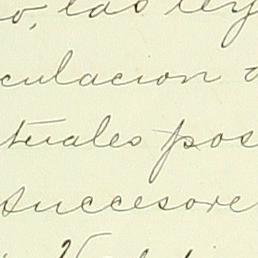 o, las ley
culacion d
tuales pos
succesore